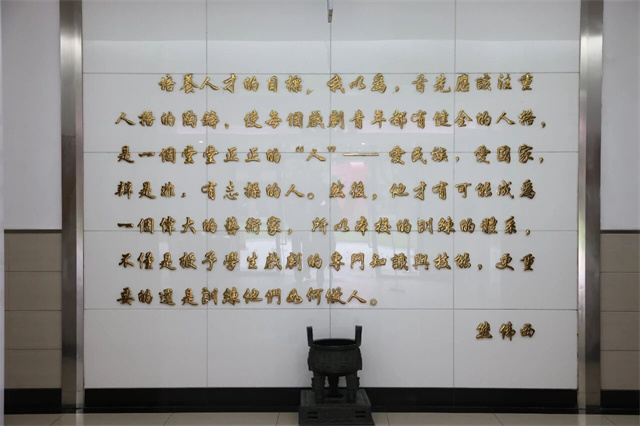 培養人才的目標，我以為，首先應該注重
人格的陶鑄，使每個戲劇青年都有健全的人格，
是一個堂堂正正的“人”——愛民族，愛國家，
辨是非，有志操的人。然後，他才有可能成為
一個偉大的藝術家，所以本校的訓練的體系，
不僅是授予學生戲劇的專門知識與技能，更重
要的還是訓練他們如何做人。
熊佛西